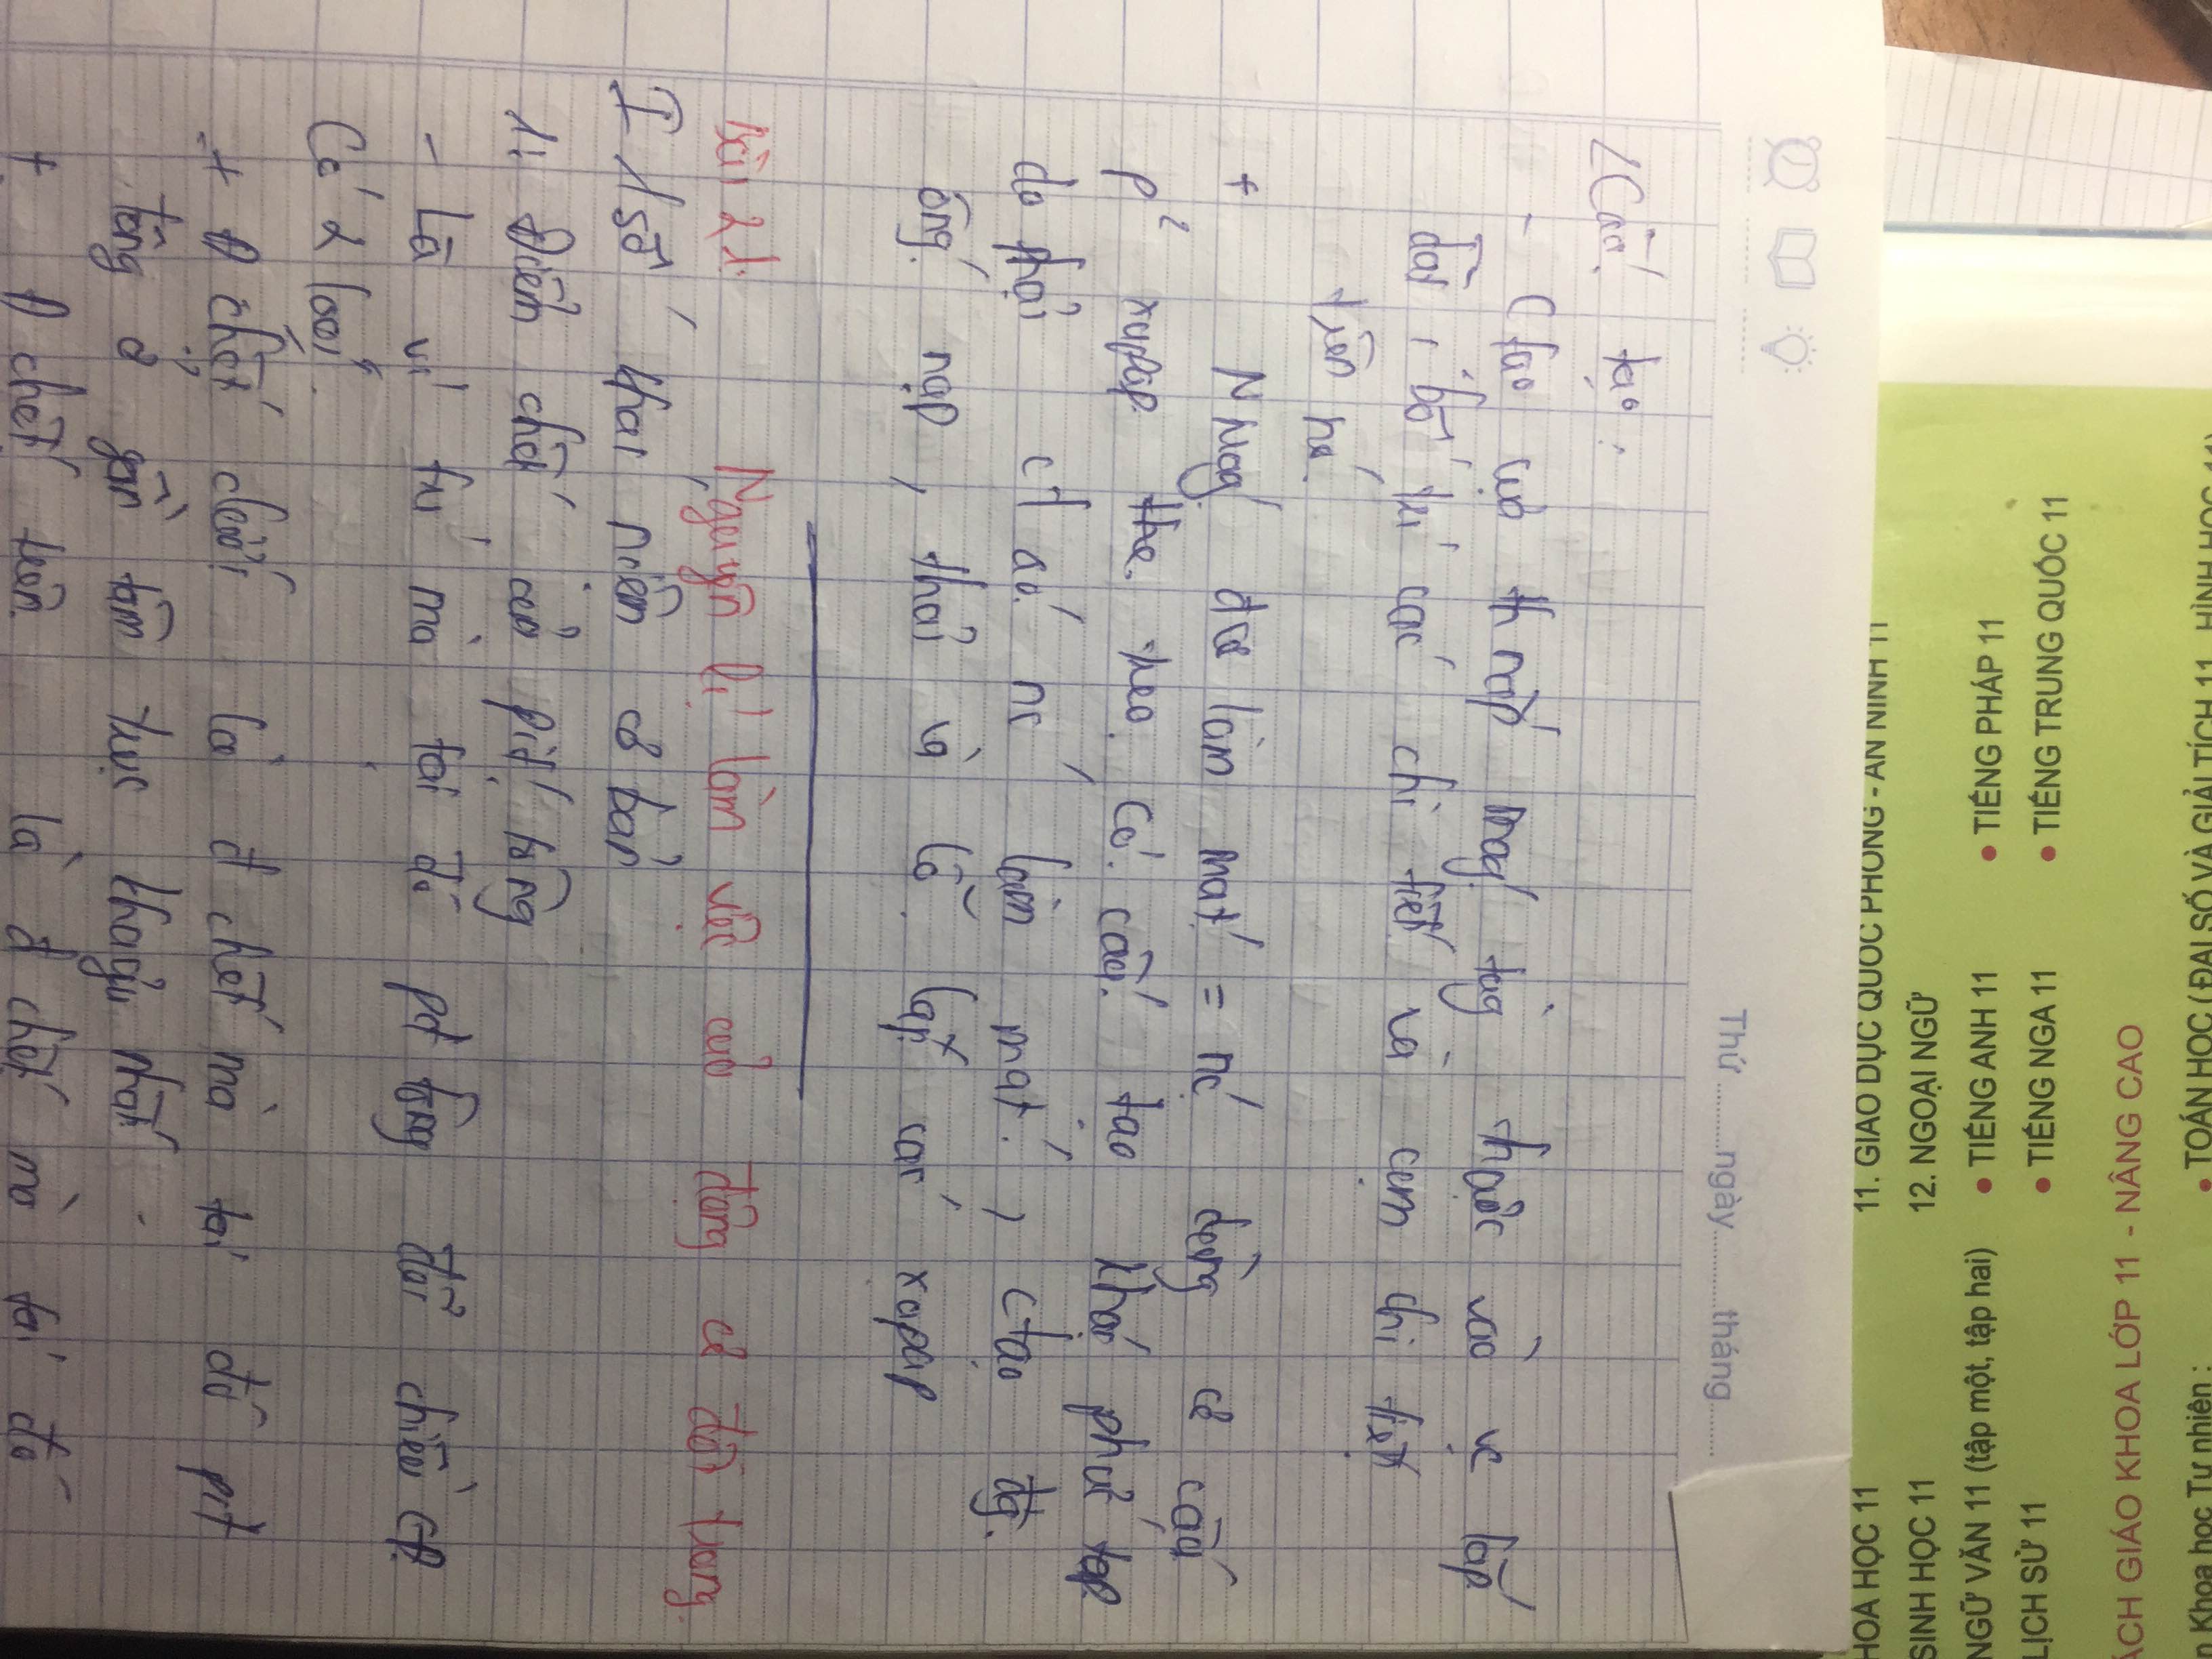 2 Cấu tạo:
- Ctạo của th máy tùy thuộc vào vị
trí, bố trí các chi tiết và cụm chi tiết
+ Nắp máy đc làm mát = nc dùng cơ cấu
p² xupáp treo. Có cấu tạo khá phức tạp
do phải có áo nc làm mát, ctạo
ống nạp, thải và lỗ lắp các xupáp
Bài 21: Nguyên lí làm việc của động cơ đốt trong.
I 1 số khái niệm cơ bản
1, Điểm chết của pittông
- Là vị trí mà tại đó pittông đổi chiều CĐ.
Có 2 loại:
+ Đ chết dưới là đ chết mà tại đó pit
tông ở gần tâm trục khuỷu nhất.
+ Đ chết trên là đ chết mà tại đó
Thứ.......ngày..........tháng..........
11. GIÁO DỤC QUỐC PHÒNG - AN NINH 11
12. NGOẠI NGỮ
• TIẾNG ANH 11 • TIẾNG PHÁP 11
• TIẾNG NGA 11 • TIẾNG TRUNG QUỐC 11
HOÁ HỌC 11
SINH HỌC 11
NGỮ VĂN 11 (tập một, tập hai)
LỊCH SỬ 11
ÁCH GIÁO KHOA LỚP 11 - NÂNG CAO
Khoa học Tự nhiên :
• TOÁN HỌC (ĐẠI SỐ VÀ GIẢI TÍCH 11, HÌNH HỌC 11)